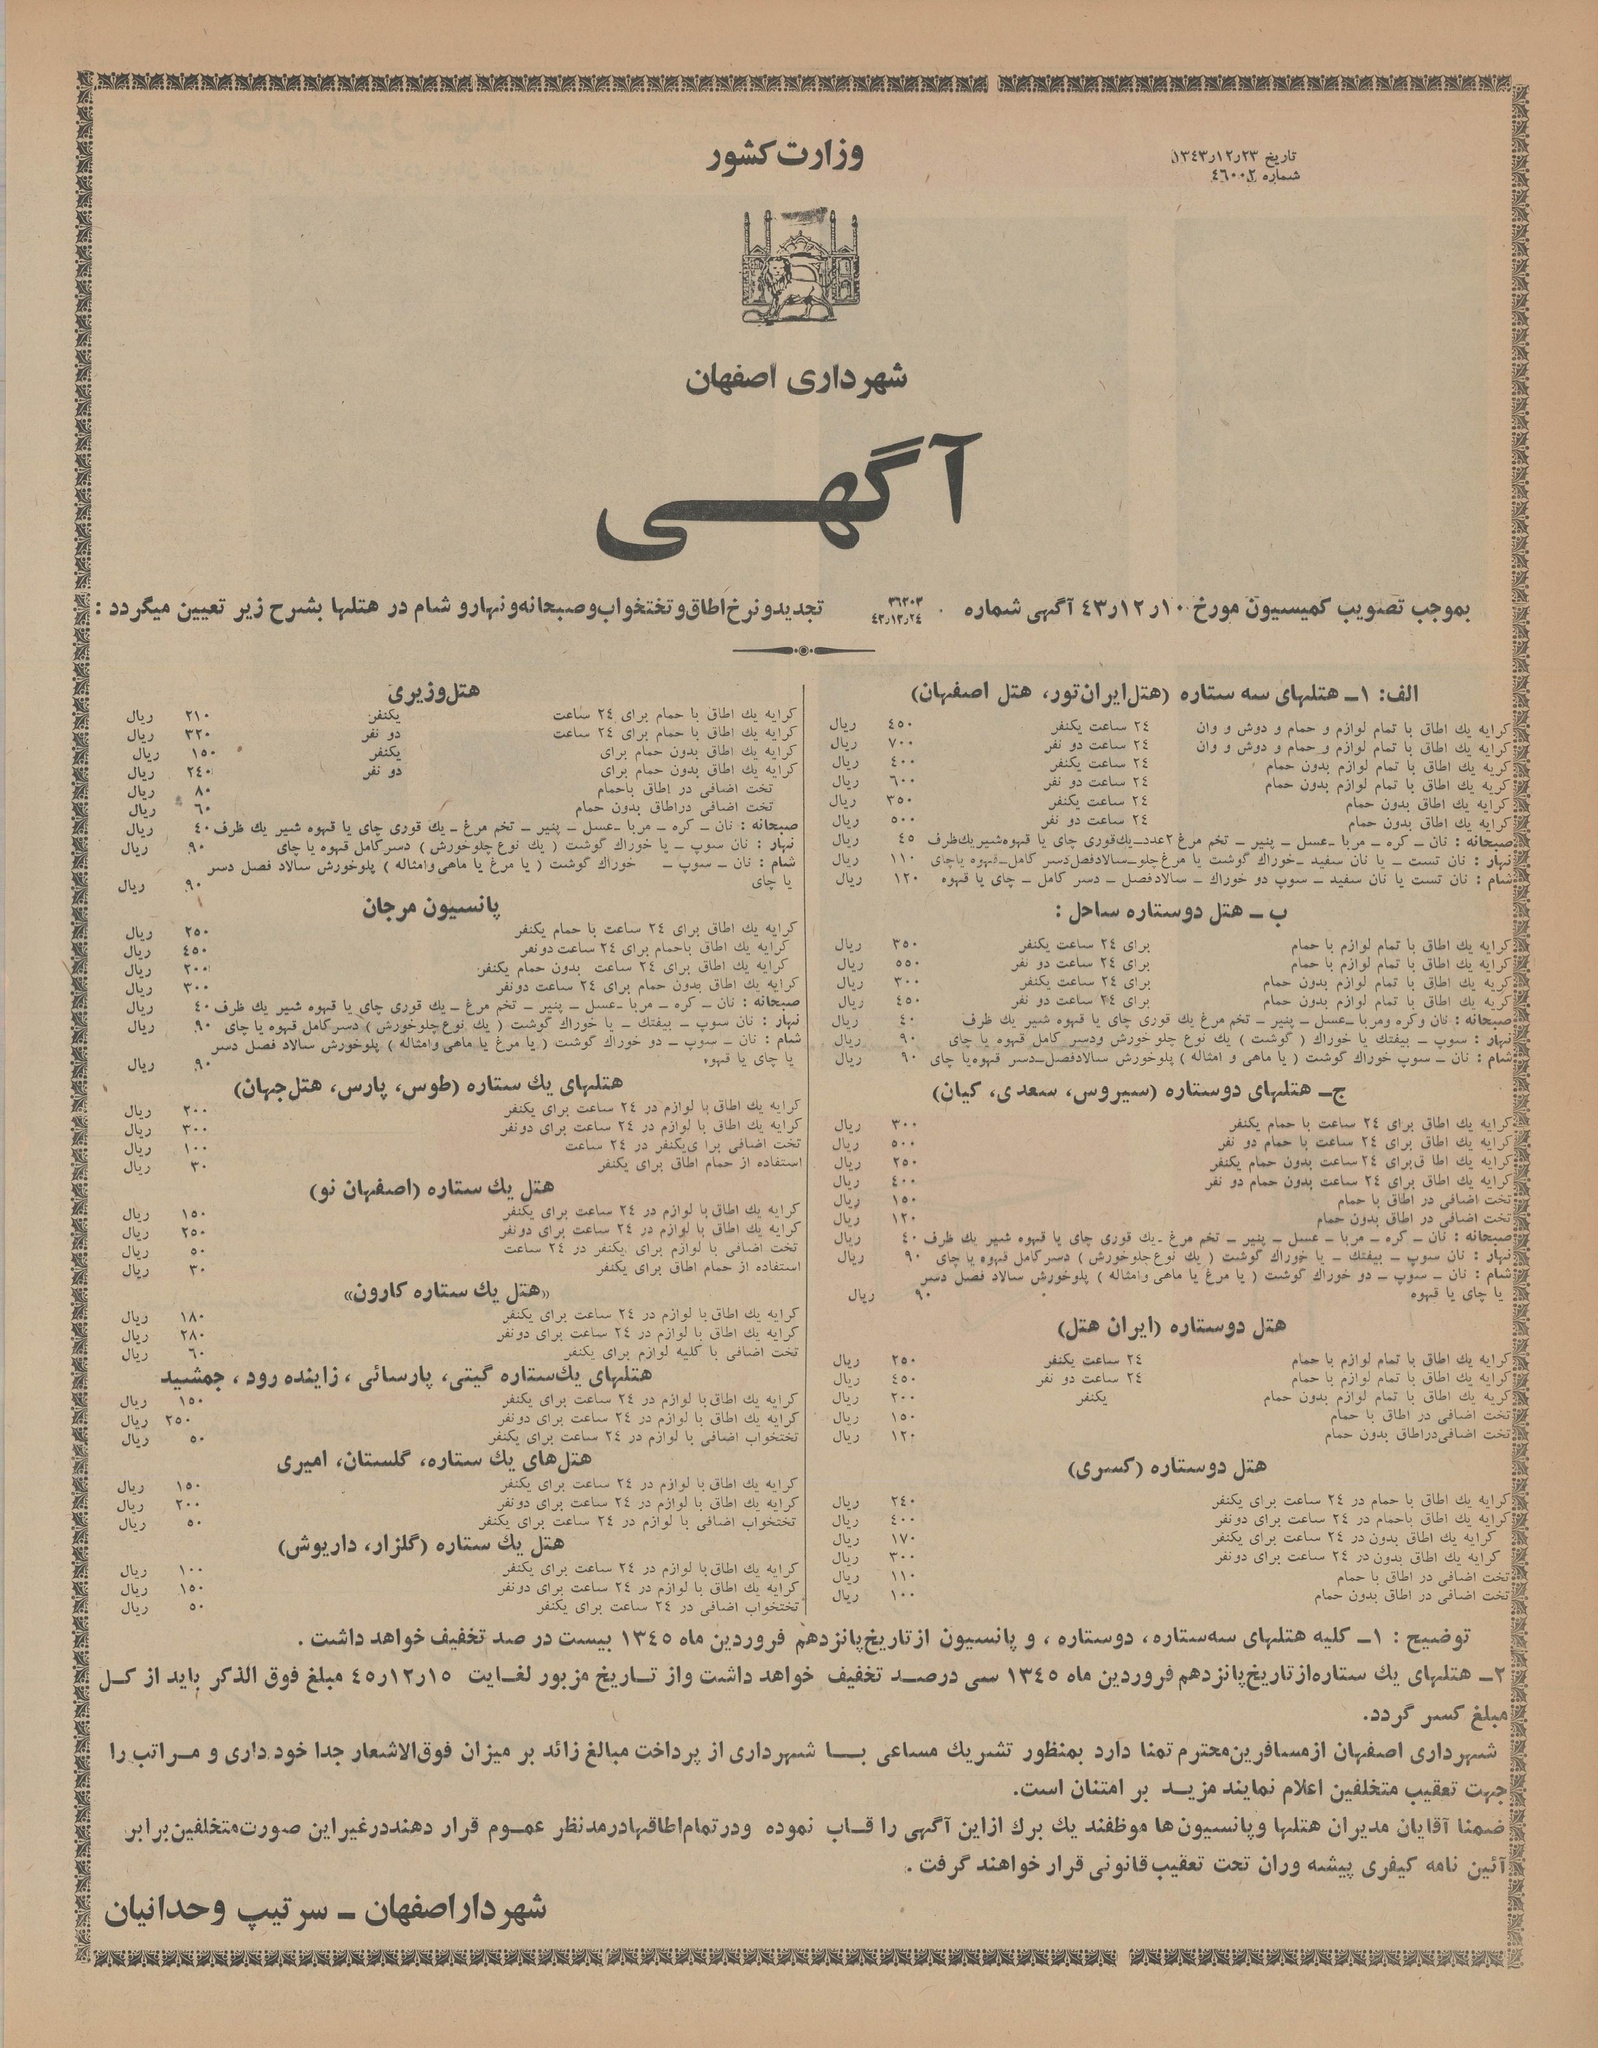 تاریخ ۱۳۴۳ر۱۲ر۲۳
شماره ۴۶۰۰۲
وزارت کشور
شهرداری اصفهان
آگهی
بموجب تصویب کمیسیون مورخ ۱۰ر۱۲ر۴۳ آگهی شماره ۳۶۲۰۳ ۴۳٫۱۲٫۲۴ تجدید و نرخ اطاق و تختخواب و صبحانه و نهار و شام در هتلها بشرح زیر تعیین میگردد :
الف: ۱ـ هتلهای سه ستاره (هتل ایران تور، هتل اصفهان)
کرایه یك اطاق با تمام لوازم و حمام و دوش و وان ۲۴ ساعت یکنفر ۴۵۰ ریال
کرایه یك اطاق با تمام لوازم و حمام و دوش و وان ۲۴ ساعت دو نفر ۷۰۰ ریال
کریه یك اطاق با تمام لوازم بدون حمام ۲۴ ساعت یکنفر ۴۰۰ ریال
کریه یك اطاق با تمام لوازم بدون حمام ۲۴ ساعت دو نفر ۶۰۰ ریال
کرایه یك اطاق بدون حمام ۲۴ ساعت یکنفر ۳۵۰ ریال
کرایه یك اطاق بدون حمام ۲۴ ساعت دو نفر ۵۰۰ ریال
صبحانه : نان ـ کره ـ مربا ـ عسل ـ پنیر ـ تخم مرغ ۲عدد ـ یك قوری چای یا قهوه شیر یك ظرف ۴۵ ریال
نهار : نان تست ـ یا نان سفید ـ خوراك گوشت یا مرغ چلو ـ سالاد فصل دسر کامل ـ قهوه یا چای ۱۱۰ ریال
شام : نان تست یا نان سفید ـ سوپ دو خوراك ـ سالاد فصل ـ دسر کامل ـ چای یا قهوه ۱۲۰ ریال
ب ـ هتل دوستاره ساحل :
کرایه یك اطاق با تمام لوازم با حمام برای ۲۴ ساعت یکنفر ۳۵۰ ریال
کرایه یك اطاق با تمام لوازم با حمام برای ۲۴ ساعت دو نفر ۵۵۰ ریال
کریه یك اطاق با تمام لوازم بدون حمام برای ۲۴ ساعت یکنفر ۳۰۰ ریال
کریه یك اطاق با تمام لوازم بدون حمام برای ۲۴ ساعت دو نفر ۴۵۰ ریال
صبحانه : نان و کره و مربا ـ عسل ـ پنیر ـ تخم مرغ یك قوری چای یا قهوه شیر یك ظرف ۴۰ ریال
نهار : سوپ ـ بیفتك یا خوراك ( گوشت ) یك نوع چلو خورش و دسر کامل قهوه یا چای ۹۰ ریال
شام : نان ـ سوپ خوراك گوشت ( یا ماهی و امثاله ) پلوخورش سالاد فصل ـ دسر قهوه یا چای ۹۰ ریال
ج ـ هتلهای دوستاره (سیروس، سعدی، کیان)
کرایه یك اطاق برای ۲۴ ساعت با حمام یکنفر ۳۰۰ ریال
کرایه یك اطاق برای ۲۴ ساعت با حمام دو نفر ۵۰۰ ریال
کرایه یك اطا ق برای ۲۴ ساعت بدون حمام یکنفر ۲۵۰ ریال
کرایه یك اطاق برای ۲۴ ساعت بدون حمام دو نفر ۴۰۰ ریال
تخت اضافی در اطاق با حمام ۱۵۰ ریال
تخت اضافی در اطاق بدون حمام ۱۲۰ ریال
صبحانه : نان ـ کره ـ مربا ـ عسل ـ پنیر ـ تخم مرغ ـ یك قوری چای یا قهوه شیر یك ظرف ۴۰ ریال
نهار : نان سوپ ـ بیفتك ـ یا خوراك گوشت ( یك نوع چلوخورش ) دسر کامل قهوه یا چای ۹۰ ریال
شام : نان ـ سوپ ـ دو خوراك گوشت ( یا مرغ یا ماهی وامثاله ) پلوخورش سالاد فصل دسر
یا چای یا قهوه ۹۰ ریال
هتل دوستاره (ایران هتل)
کرایه یك اطاق با تمام لوازم با حمام ۲۴ ساعت یکنفر ۲۵۰ ریال
کرایه یك اطاق با تمام لوازم با حمام ۲۴ ساعت دو نفر ۴۵۰ ریال
کریه یك اطاق با تمام لوازم بدون حمام یکنفر ۲۰۰ ریال
تخت اضافی در اطاق با حمام ۱۵۰ ریال
تخت اضافی دراطاق بدون حمام ۱۲۰ ریال
هتل دوستاره (کسری)
کرایه یك اطاق با حمام در ۲۴ ساعت برای یکنفر ۲۴۰ ریال
کرایه یك اطاق باحمام در ۲۴ ساعت برای دونفر ۴۰۰ ریال
کرایه یك اطاق بدون در ۲۴ ساعت برای یکنفر ۱۷۰ ریال
کرایه یك اطاق بدون در ۲۴ ساعت برای دونفر ۳۰۰ ریال
تخت اضافی در اطاق با حمام ۱۱۰ ریال
تخت اضافی در اطاق بدون حمام ۱۰۰ ریال
هتل وزیری
کرایه یك اطاق با حمام برای ۲۴ ساعت یکنفر ۲۱۰ ریال
کرایه یك اطاق با حمام برای ۲۴ ساعت دو نفر ۳۲۰ ریال
کرایه یك اطاق بدون حمام برای یکنفر ۱۵۰ ریال
کرایه یك اطاق بدون حمام برای دو نفر ۲۴۰ ریال
تخت اضافی در اطاق باحمام ۸۰ ریال
تخت اضافی دراطاق بدون حمام ۶۰ ریال
صبحانه : نان ـ کره ـ مربا ـ عسل ـ پنیر ـ تخم مرغ ـ یك قوری چای یا قهوه شیر یك ظرف ۴۰ ریال
نهار : نان سوپ ـ یا خوراك گوشت ( یك نوع چلوخورش ) دسر کامل قهوه یا چای ۹۰ ریال
شام : نان ـ سوپ ـ خوراك گوشت ( یا مرغ یا ماهی وامثاله ) پلوخورش سالاد فصل دسر
یا چای ۹۰ ریال
پانسیون مرجان
کرایه یك اطاق برای ۲۴ ساعت با حمام یکنفر ۲۵۰ ریال
کرایه یك اطاق باحمام برای ۲۴ ساعت دونفر ۴۵۰ ریال
کرایه یك اطاق برای ۲۴ ساعت بدون حمام یکنفر ۲۰۰ ریال
کرایه یك اطاق بدون حمام برای ۲۴ ساعت دونفر ۳۰۰ ریال
صبحانه : نان ـ کره ـ مربا ـ عسل ـ پنیر ـ تخم مرغ ـ یك قوری چای یا قهوه شیر یك ظرف ۴۰ ریال
نهار : نان سوپ ـ بیفتك ـ یا خوراك گوشت ( یك نوع چلوخورش ) دسر کامل قهوه یا چای ۹۰ ریال
شام : نان ـ سوپ ـ دو خوراك گوشت ( یا مرغ یا ماهی وامثاله ) پلوخورش سالاد فصل دسر
یا چای یا قهوه ۹۰ ریال
هتلهای یك ستاره (طوس، پارس، هتل جهان)
کرایه یك اطاق با لوازم در ۲۴ ساعت برای یکنفر ۲۰۰ ریال
کرایه یك اطاق با لوازم در ۲۴ ساعت برای دونفر ۳۰۰ ریال
تخت اضافی برا ی یکنفر در ۲۴ ساعت ۱۰۰ ریال
استفاده از حمام اطاق برای یکنفر ۳۰ ریال
هتل یك ستاره (اصفهان نو)
کرایه یك اطاق با لوازم در ۲۴ ساعت برای یکنفر ۱۵۰ ریال
کرایه یك اطاق با لوازم در ۲۴ ساعت برای دونفر ۲۵۰ ریال
تخت اضافی با لوازم برای یکنفر در ۲۴ ساعت ۵۰ ریال
استفاده از حمام اطاق برای یکنفر ۳۰ ریال
«هتل یك ستاره کارون»
کرایه یك اطاق با لوازم در ۲۴ ساعت برای یکنفر ۱۸۰ ریال
کرایه یك اطاق با لوازم در ۲۴ ساعت برای دونفر ۲۸۰ ریال
تخت اضافی با کلیه لوازم برای یکنفر ۶۰ ریال
هتلهای یك ستاره گیتی، پارسائی ، زاینده رود ، جمشید
کرایه یك اطاق با لوازم در ۲۴ ساعت برای یکنفر ۱۵۰ ریال
کرایه یك اطاق با لوازم در ۲۴ ساعت برای دونفر ۲۵۰ ریال
تختخواب اضافی با لوازم در ۲۴ ساعت برای یکنفر ۵۰ ریال
هتل های یك ستاره، گلستان، امیری
کرایه یك اطاق با لوازم در ۲۴ ساعت برای یکنفر ۱۵۰ ریال
کرایه یك اطاق با لوازم در ۲۴ ساعت برای دونفر ۲۰۰ ریال
تختخواب اضافی با لوازم در ۲۴ ساعت برای یکنفر ۵۰ ریال
هتل یك ستاره (گلزار، داریوش)
کرایه یك اطاق با لوازم در ۲۴ ساعت برای یکنفر ۱۰۰ ریال
کرایه یك اطاق با لوازم در ۲۴ ساعت برای دونفر ۱۵۰ ریال
تختخواب اضافی در ۲۴ ساعت برای یکنفر ۵۰ ریال
توضیح : ۱ـ کلیه هتلهای سه ستاره، دوستاره ، و پانسیون از تاریخ پانزدهم فروردین ماه ۱۳۴۵ بیست در صد تخفیف خواهد داشت .
۲ـ هتلهای یك ستاره از تاریخ پانزدهم فروردین ماه ۱۳۴۵ سی درصد تخفیف خواهد داشت واز تاریخ مزبور لغایت ۱۵ر۱۲ر۴۵ مبلغ فوق الذکر باید از کل
مبلغ کسر گردد.
شهرداری اصفهان از مسافرین محترم تمنا دارد بمنظور تشریك مساعی با شهرداری از پرداخت مبالغ زائد بر میزان فوق الاشعار جدا خود داری و مراتب را
جهت تعقیب متخلفین اعلام نمایند مزید بر امتنان است.
ضمنا آقایان مدیران هتلها وپانسیون ها موظفند یك برك از این آگهی را قاب نموده ودر تمام اطاقها در مد نظر عموم قرار دهند در غیر این صورت متخلفین برابر
آئین نامه کیفری پیشه وران تحت تعقیب قانونی قرار خواهند گرفت .
شهردار اصفهان ـ سرتیپ وحدانیان